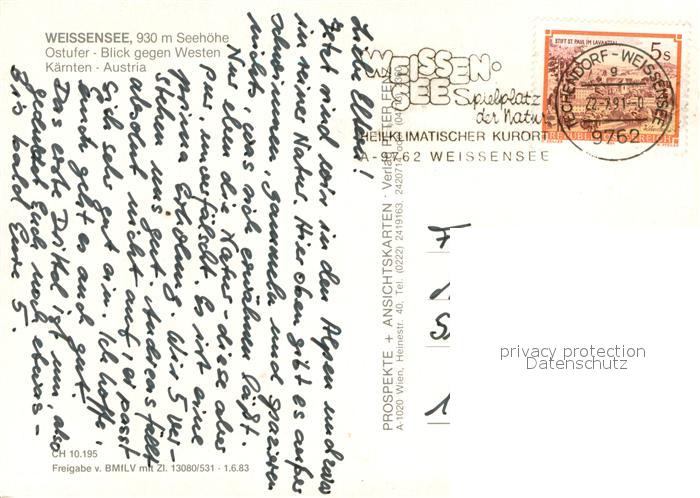 WEISSENSEE, 930 m Seehöhe
Ostufer - Blick gegen Westen
Kärnten - Austria
Liebe Eltern!
Jetzt sind wir in den Alpen und zwar
in reiner Natur. Hier oben gibt es außer
schwimmen, gammeln und spazieren
nichts, was sich erwähnen läßt.
Nur eben die Natur - diese aber
pur, unverfälscht. Es ist eine
prima Erholung. Wir 5 ver-
stehen uns gut. Andreas fällt
absolut nicht auf, er passt
sich sehr gut ein. Ich hoffe,
euch geht es auch gut.
Das erste Drittel ist um, also
geduldet Euch noch etwas -
Bis bald Eure 5.
CH 10.195
Freigabe v. BMfLV mit Zl. 13080/531 - 1.6.83
PROSPEKTE + ANSICHTSKARTEN · Verlag PETER
A-1020 Wien, Heinestr. 40, Tel. (0222) 2419163, 242071
WEISSEN-
SEE Spielplatz
der Natur
HEILKLIMATISCHER KURORT
A-9762 WEISSENSEE
STIFT ST. PAUL IM LAVANTTAL
5s
REPUBLIK
TECHENDORF-WEISSENSEE
9762
privacy protection
Datenschutz